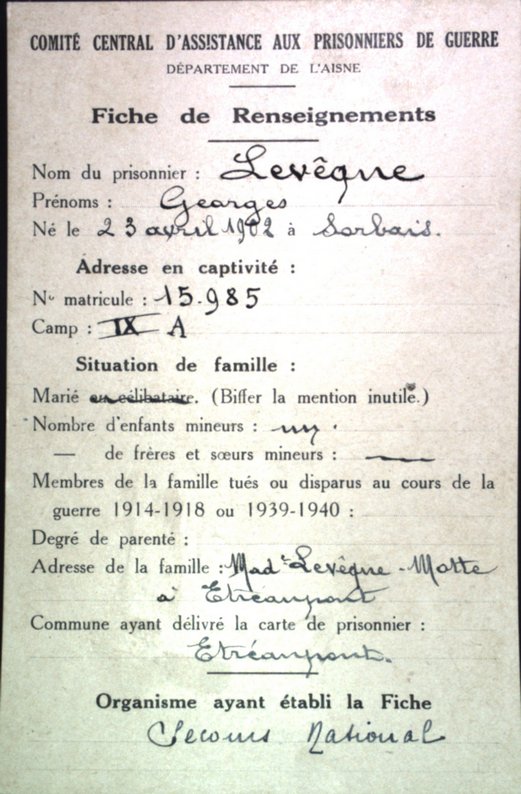 COMITÉ CENTRAL D'ASSISTANCE AUX PRISONNIERS DE GUERRE
DÉPARTEMENT DE L'AISNE
Fiche de Renseignements
Nom du prisonnier : Levêque
Prénoms : Georges
Né le 23 avril 1902 à Sorbais.
Adresse en captivité :
No matricule : 15.985
Camp : IX A
Situation de famille :
Marié ou célibataire. (Biffer la mention inutile.)
Nombre d'enfants mineurs : un.
— de frères et sœurs mineurs : —
Membres de la famille tués ou disparus au cours de la
guerre 1914-1918 ou 1939-1940 :
Degré de parenté :
Adresse de la famille : Made Levêque-Motte
à Etréaupont
Commune ayant délivré la carte de prisonnier :
Etréaupont.
Organisme ayant établi la Fiche
Secours National